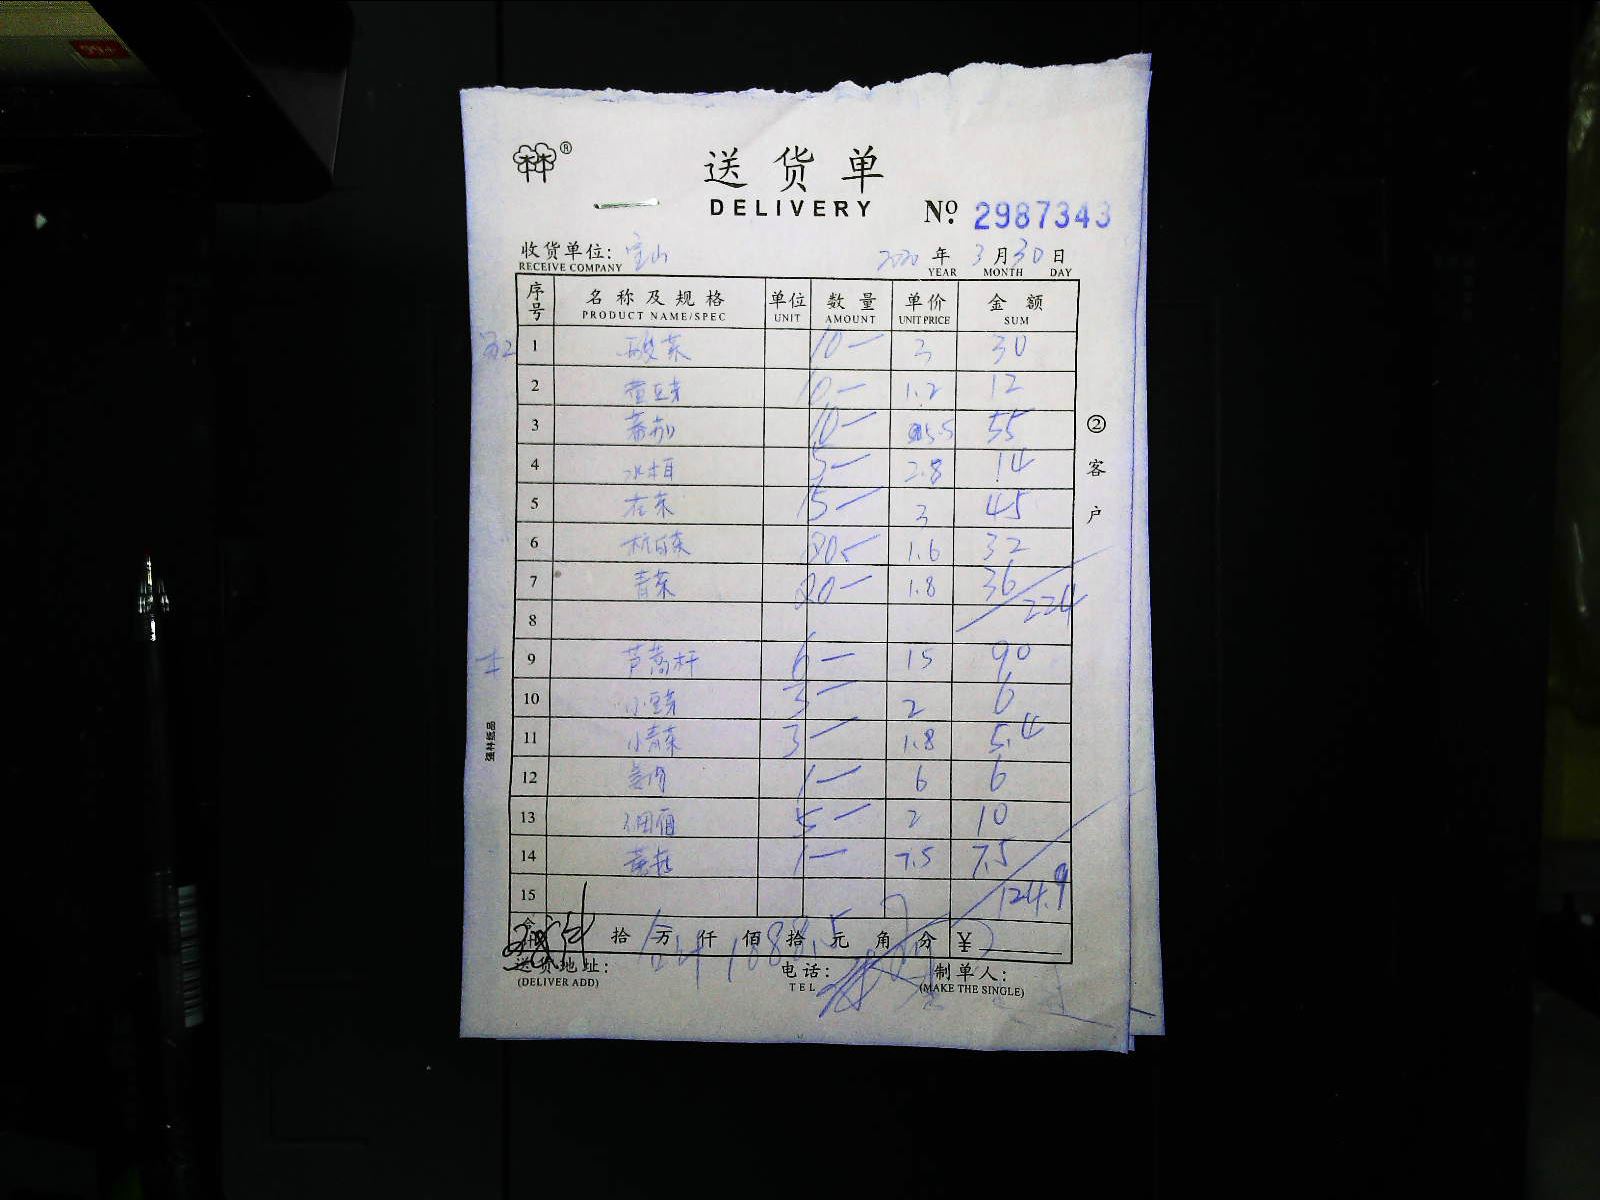 送货单
DELIVERY
№ 2987343
收货单位: 宝山 2020 年 3 月 30 日
RECEIVE COMPANY YEAR MONTH DAY
序号 名称及规格 单位 数量 单价 金额
PRODUCT NAME/SPEC UNIT AMOUNT UNIT PRICE SUM
1 酸菜 10 — 3 30
2 黄豆芽 10 — 1.2 12
3 番茄 10 — 5.5 55
4 5 — 2.8 14
5 15 — 3 45
6 杭白菜 20 1.6 32
7 青菜 20 — 1.8 36
8 224
9 芦蒿杆 6 — 15 90
10 小豆芽 3 — 2 6
11 小青菜 3 — 1.8 5.4
12 姜肉 1 — 6 6
13 5 — 2 10
14 1 — 7.5 7.5
15 124.9
合计 拾 万 仟 佰 拾 元 角 分 ¥
合计 1888.5
送货地址: 电话: 制单人:
(DELIVER ADD) TEL (MAKE THE SINGLE)
②客户
强林纸品